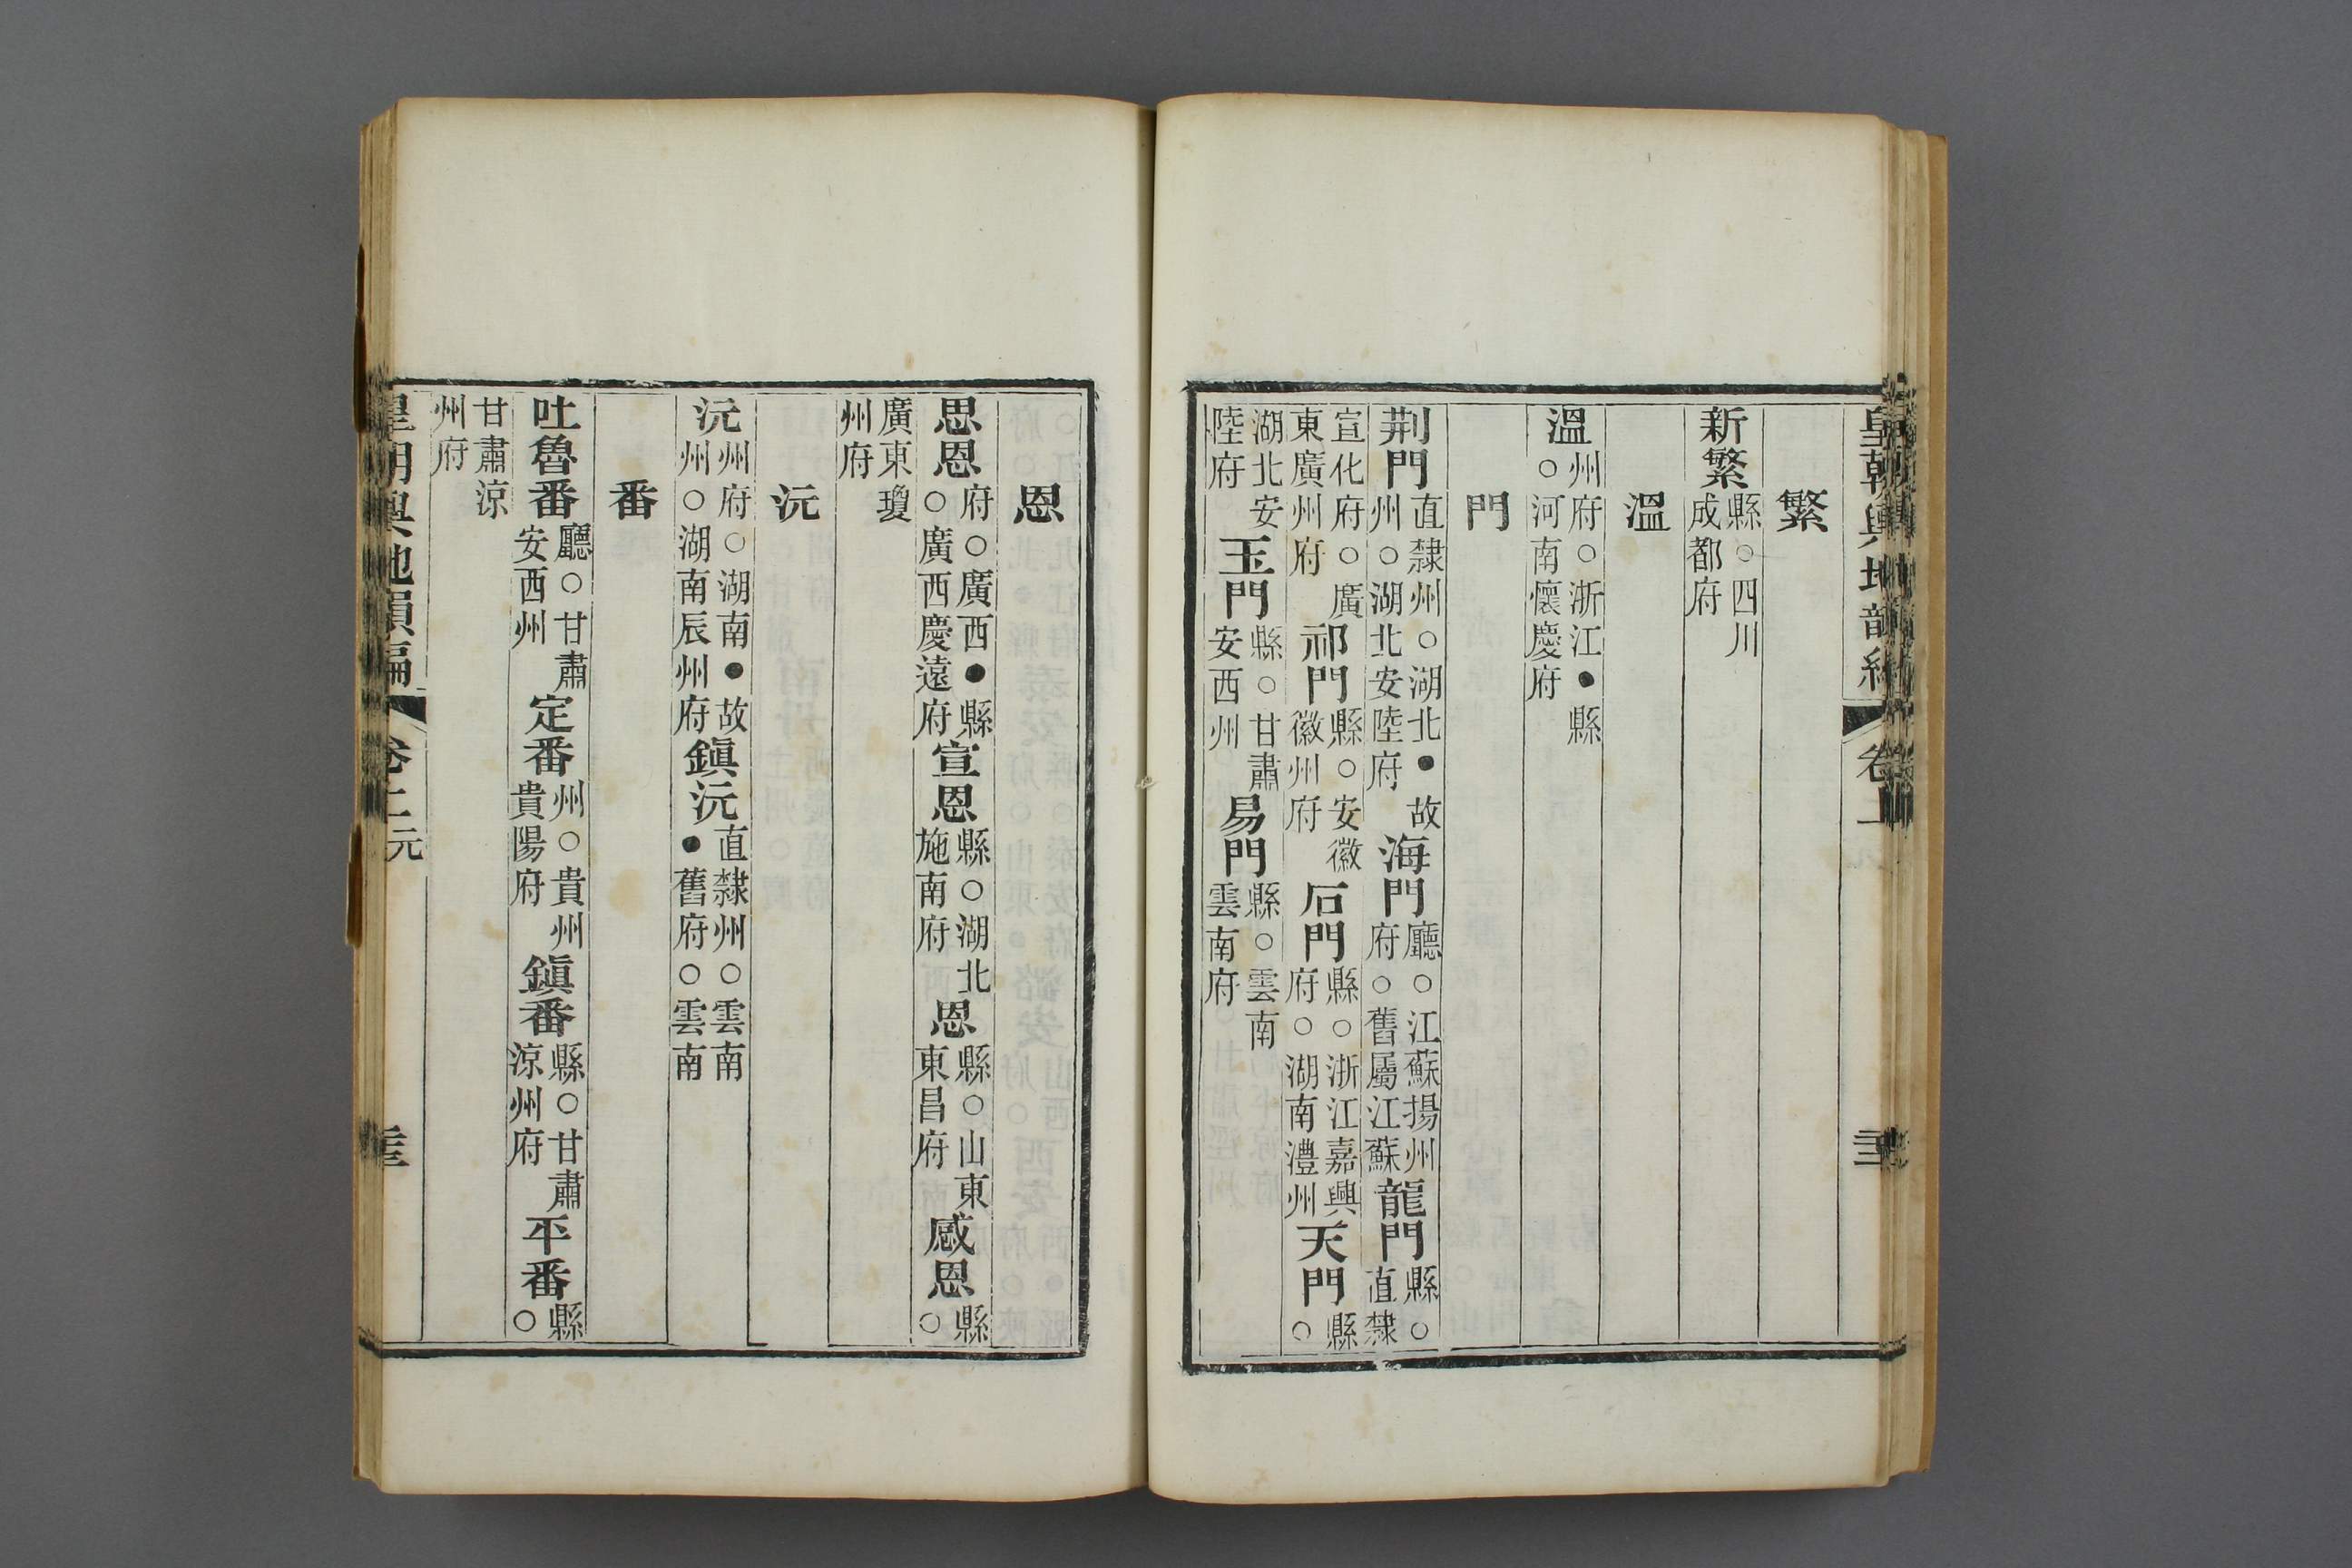 繁
新繁縣○四川成都府
溫
溫州府○浙江●縣○河南懷慶府
門
荆門直隸州○湖北●故州○湖北安陸府海門廳○江蘇揚州府○舊屬江蘇龍門縣○直隸
宣化府○廣東廣州府祁門縣○安徽徽州府石門縣○浙江嘉興府○湖南澧州天門縣○
湖北安陸府玉門縣○甘肅安西州易門縣○雲南雲南府
恩
思恩府○廣西●縣○廣西慶遠府宣恩縣○湖北施南府恩縣○山東東昌府感恩縣○
廣東瓊州府
沅
沅州府○湖南●故州○湖南辰州府鎭沅直隸州○雲南●舊府○雲南
番
吐魯番廳○甘肅安西州定番州○貴州貴陽府鎭番縣○甘肅涼州府平番縣○
甘肅涼州府